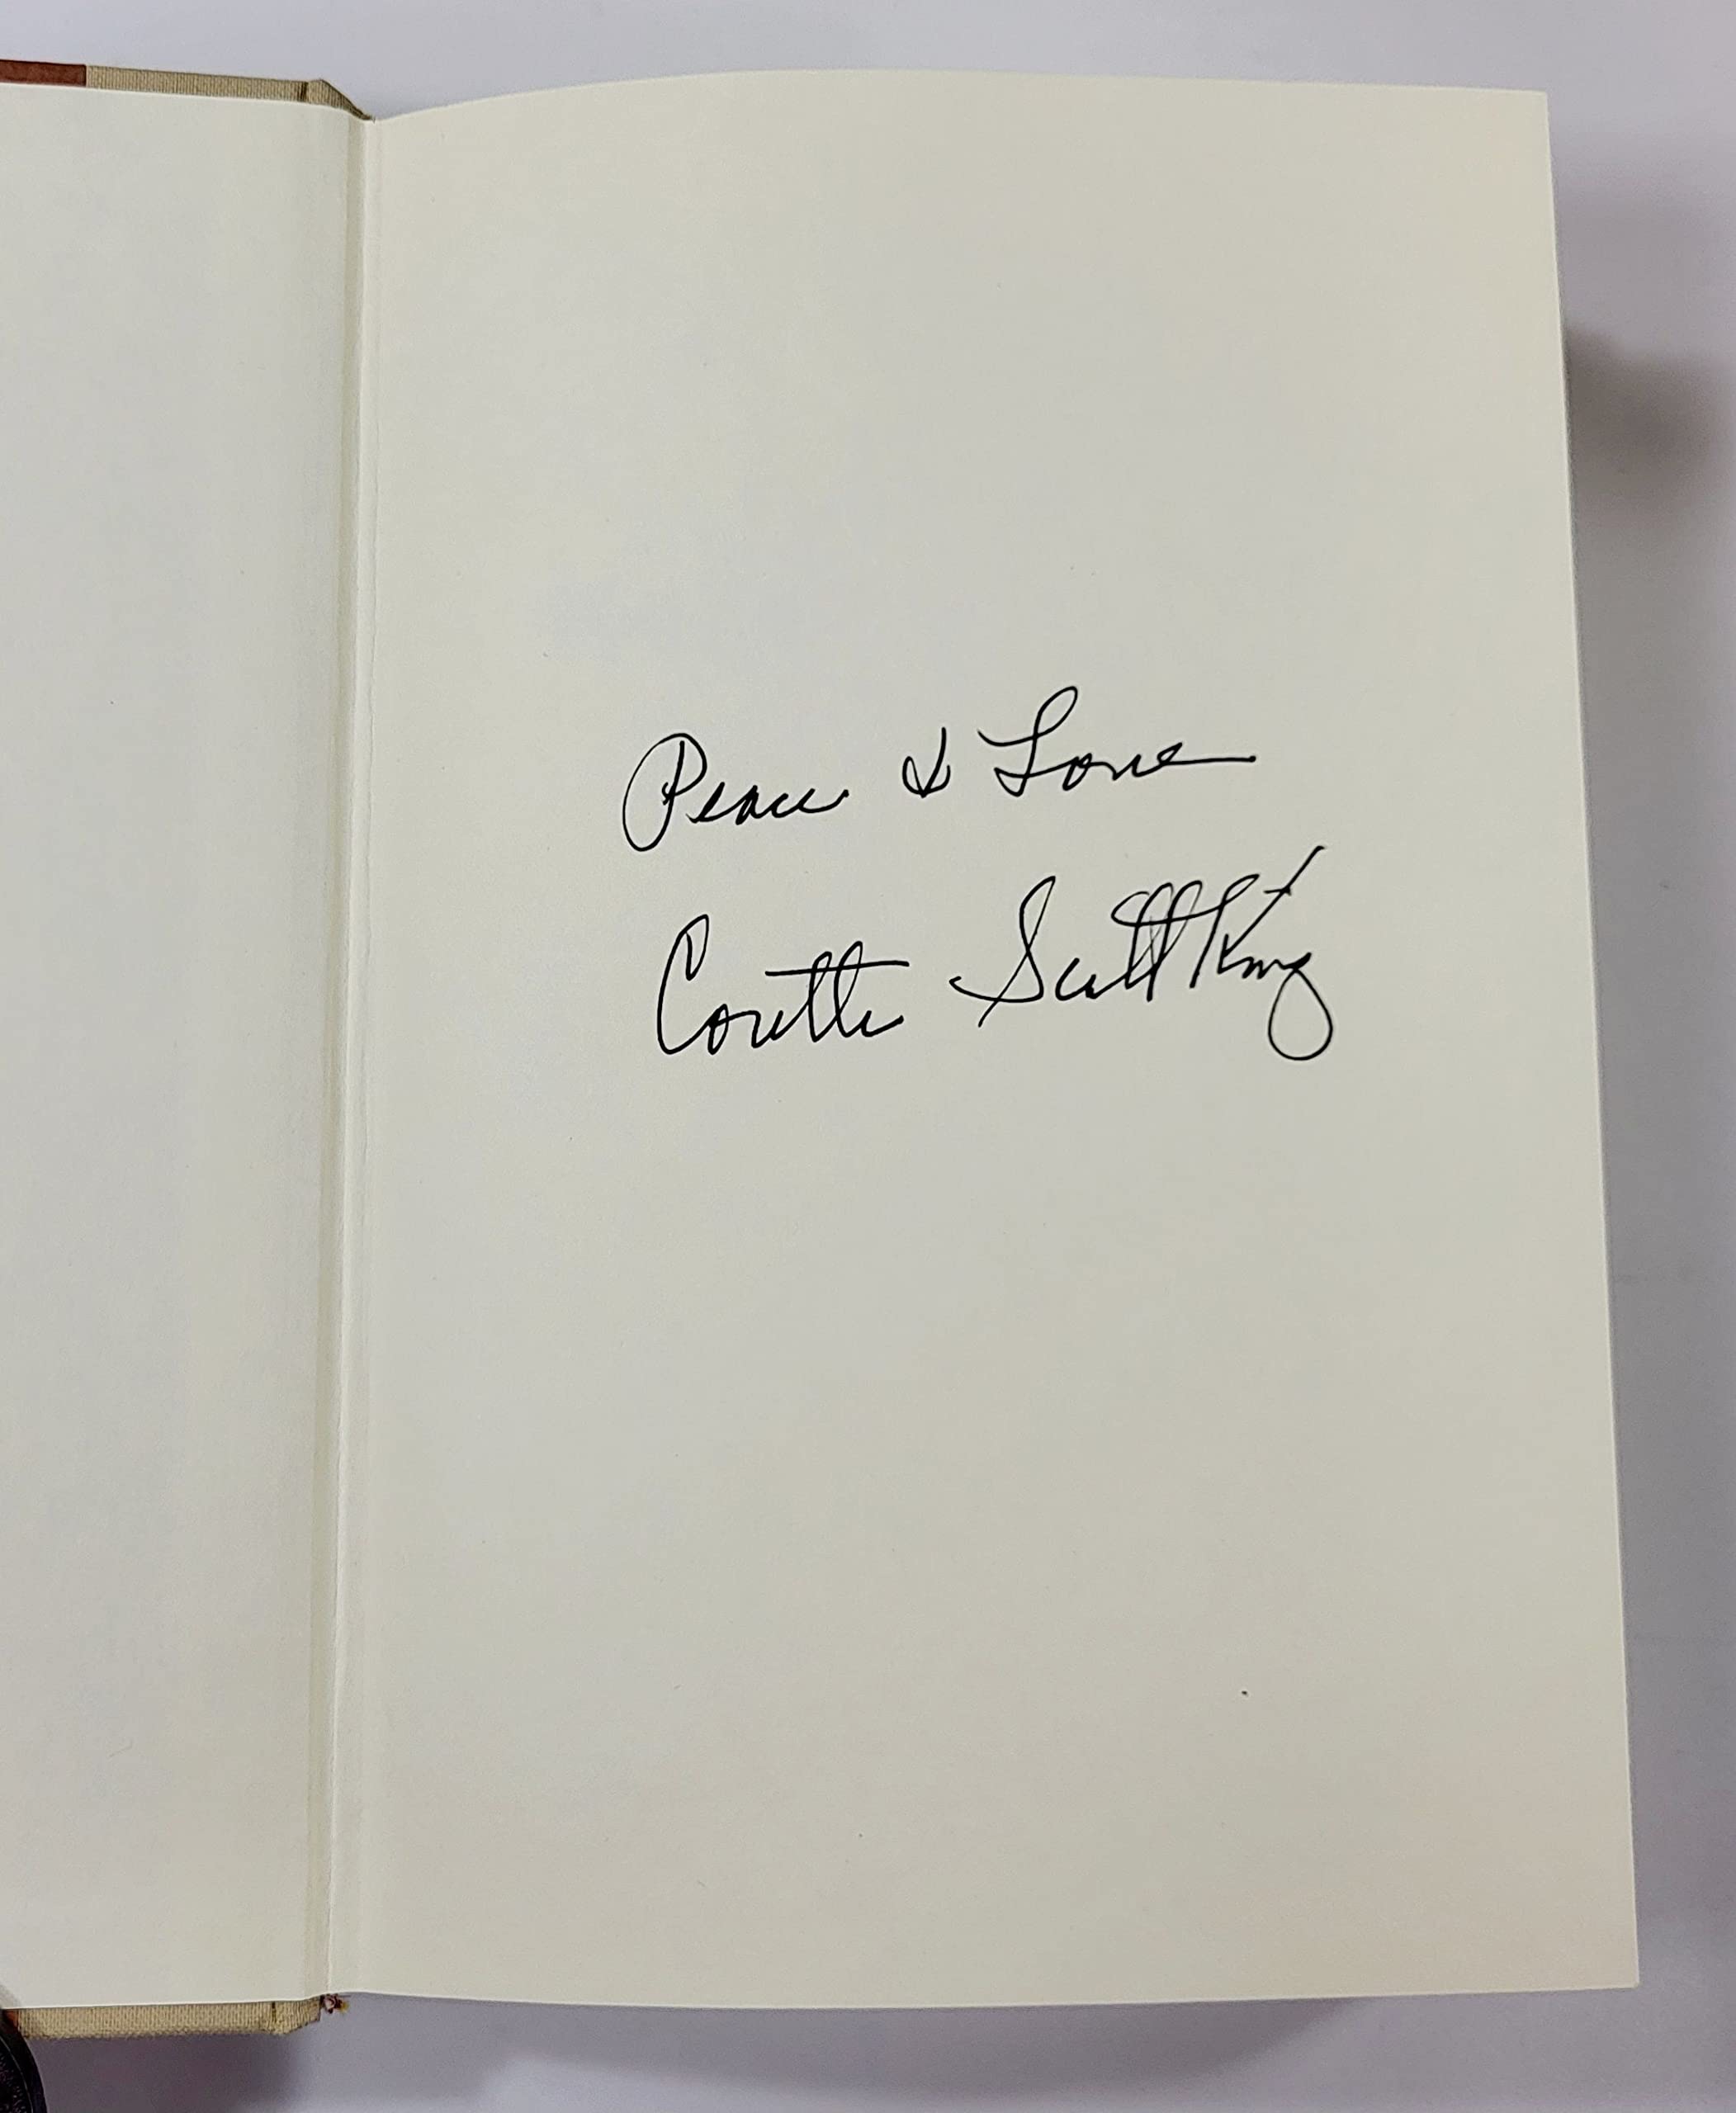 Peace & Love
Coretta Scott King